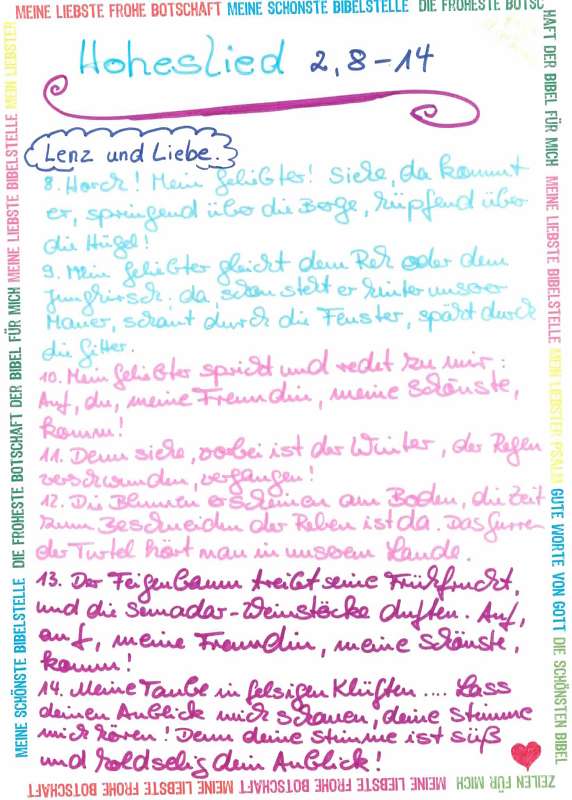 MEINE LIEBSTE FROHE BOTSCHAFT MEINE SCHÖNSTE BIBELSTELLE DIE FROHESTE BOTSC
HAFT DER BIBEL FÜR MICH MEINE LIEBSTE BIBELSTELLE MEIN LIEBSTER PSALM GUTE WORTE VON GOTT DIE SCHÖNSTEN BIBEL
Hoheslied 2, 8-14
Lenz und Liebe.
8. Horch! Mein Geliebter! Siehe, da kommt
er, springend über die Berge, hüpfend über
die Hügel!
9. Mein Geliebter gleicht dem Reh oder dem
Junghirsch. da, schon steht er hinter unserer
Mauer, schaut durch die Fenster, späht durch
die Gitter.
10. Mein Geliebter spricht und redet zu mir:
Auf, du, meine Freundin, meine Schönste,
komm!
11. Denn siehe, vorbei ist der Winter, der Regen
verschwunden, vergangen!
12. Die Blumen erscheinen am Boden, die Zeit
zum Beschneiden der Reben ist da. Das Gurren
der Turtel hört man in unserem Lande.
13. Der Feigenbaum treibt seine Frühfrucht,
und die Semadar-Weinstöcke duften. Auf,
auf, meine Freundin, meine Schönste,
komm!
14. Meine Taube in felsigen Klüften .... Lass
deinen Anblick mich schauen, deine Stimme
mich hören! Denn deine Stimme ist süß
und holdselig dein Anblick!
ZEILEN FÜR MICH MEINE LIEBSTE FROHE BOTSCHAFT MEINE LIEBSTE FROHE BOTSCHAFT
MEINE SCHÖNSTE BIBELSTELLE DIE FROHESTE BOTSCHAFT DER BIBEL FÜR MICH MEINE LIEBSTE BIBELSTELLE MEIN LIEBSTER